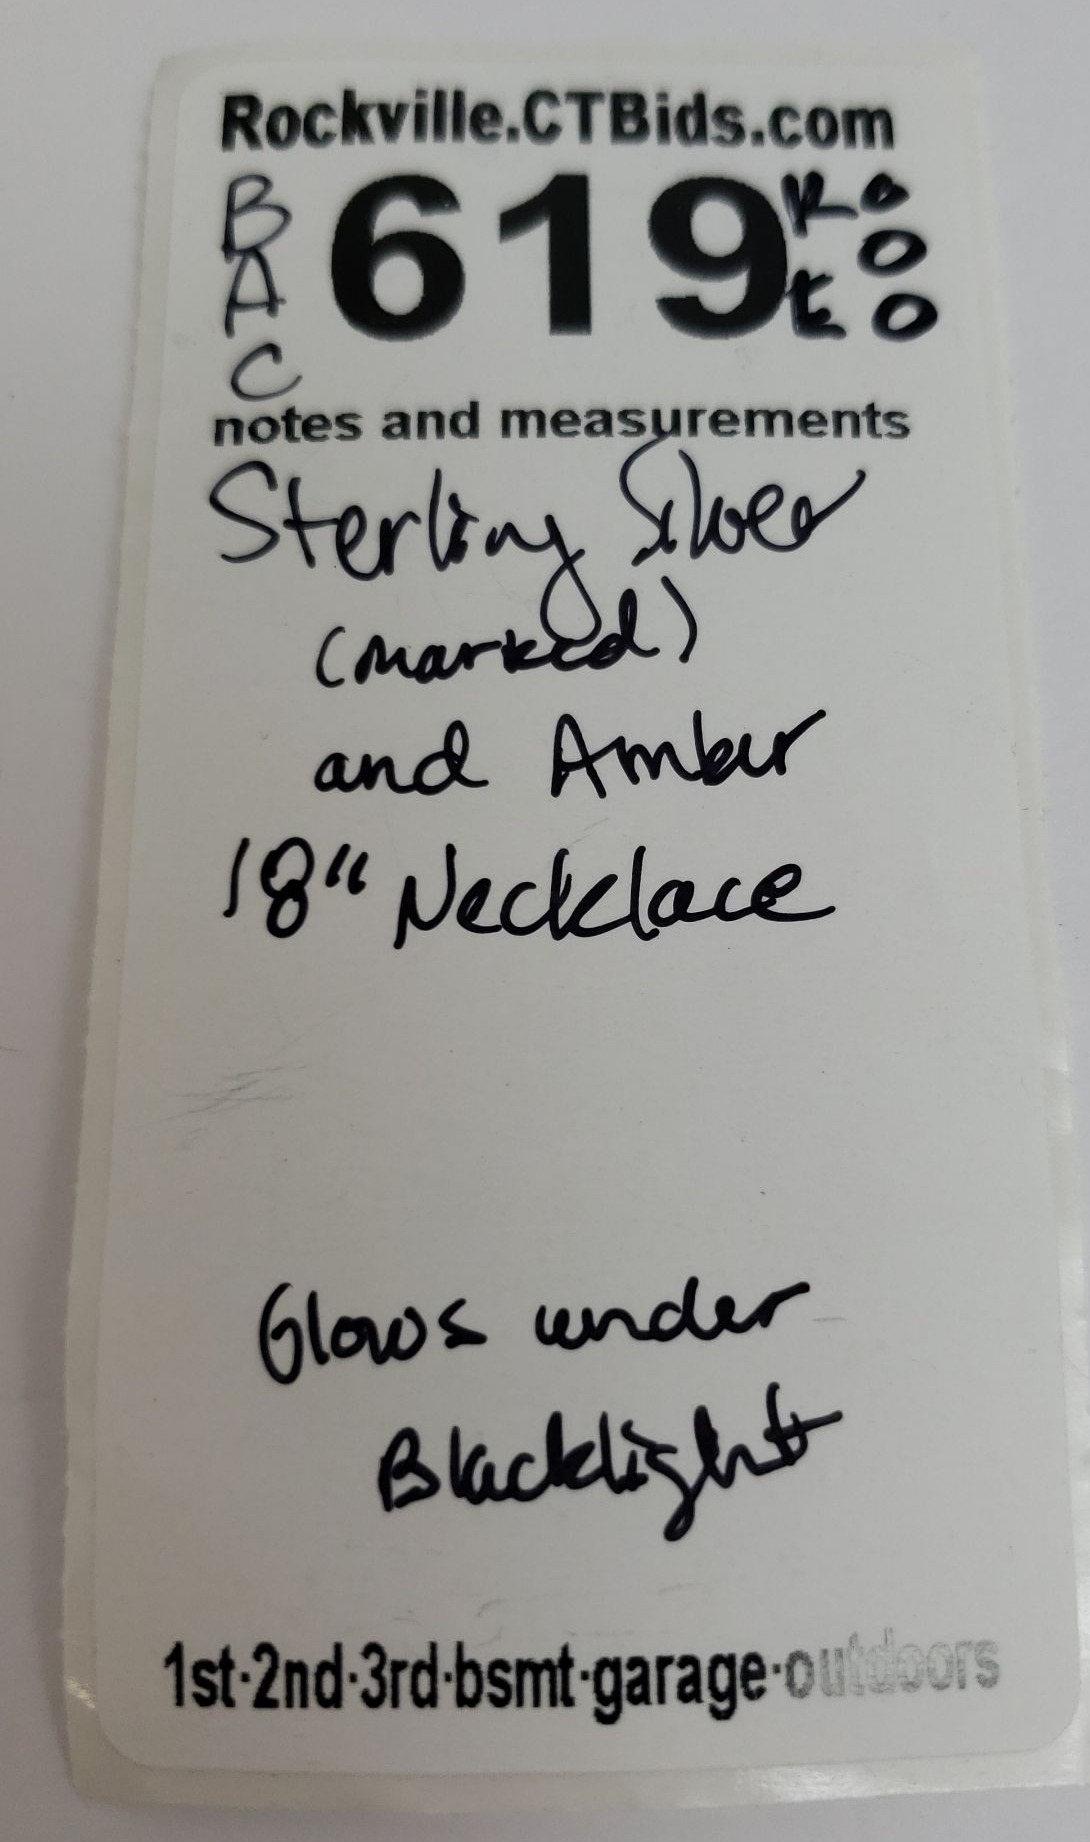 Rockville.CTBids.com
BAC
619
notes and measurements
Sterling Silver
(marked)
and Amber
18" Necklace
Glows under
Blacklight
1st·2nd·3rd·bsmt·garage·outdoors